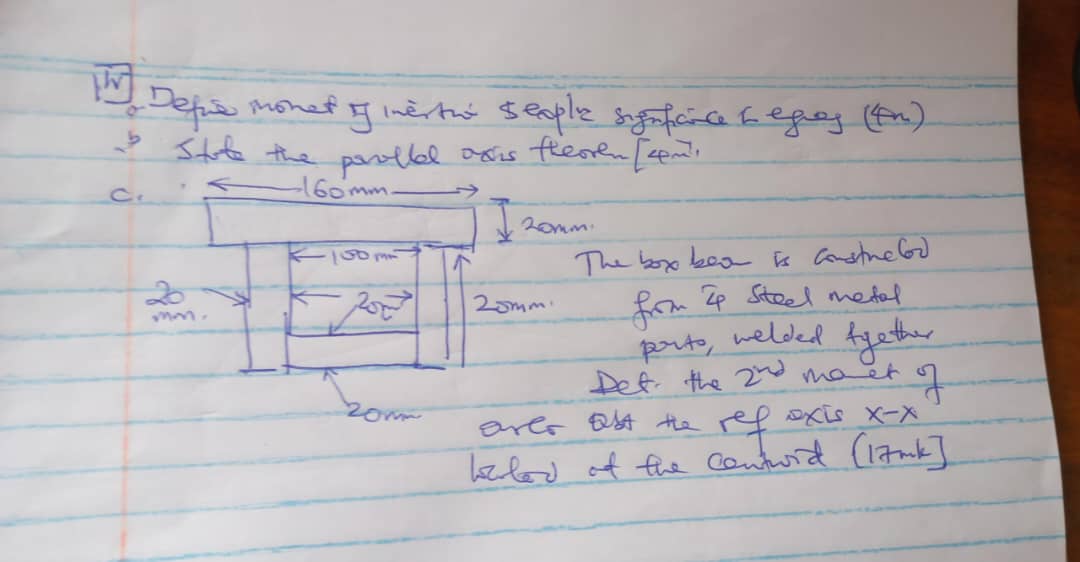 a. Define moment of inertia & explain significance in (4m)
b State the parallel axis theorem [4m].
c.
160mm
20mm.
100mm
20
mm.
20
20mm.
20mm
The box beam is constructed
from 4 steel metal
parts, welded together
Det. the 2nd moment of
area abt the ref axis x-x
located at the centroid (17mk]